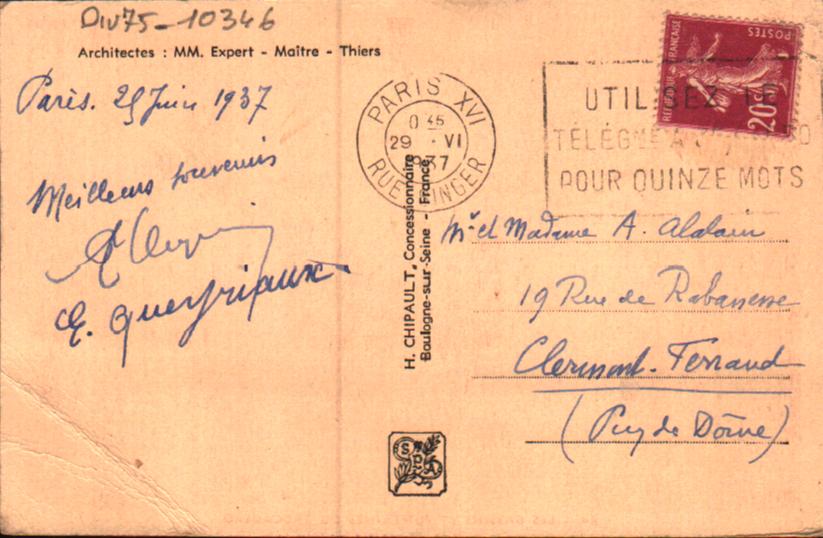 Div75-10346
Architectes : MM. Expert - Maître - Thiers
Paris. 29 Juin 1937
Meilleurs souvenirs
E. Queyriaux
PARIS XVI
0 45
29 · VI
37
RUE SINGER
UTILISEZ LE
POUR QUINZE MOTS
REPUBLIQUE FRANÇAISE
POSTES
20c
H. CHIPAULT, Concessionnaire
Boulogne-sur-Seine - France
Mr et Madame A. Alalain
19 Rue de Rabanesse
Clermont-Ferrand
(Puy de Dôme)
SPA